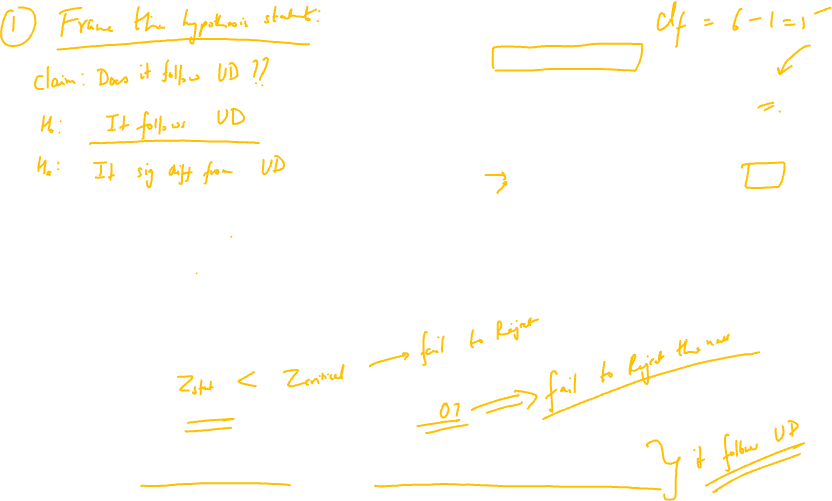 ① Frame the hypothesis statmt:
df = 6 - 1 = 5
Claim: Does it follow UD ??
H₀: It follows UD
Hₐ: It sig diff from UD
Zstat < Zcritical → fail to Reject
⇒ fail to Reject the null
it follow UD